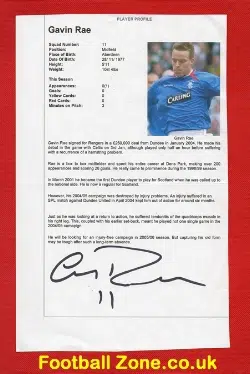 PLAYER PROFILE
Gavin Rae
Squad Number: 11
Position: Midfield
Place of Birth: Aberdeen
Date Of Birth: 28/11/1977
Height: 5'11
Weight: 10st 4lbs
This Season
Appearances: 9(1)
Goals: 0
Yellow Cards: 0
Red Cards: 0
Minutes on Pitch:
Gavin Rae
Gavin Rae signed for Rangers in a £250,000 deal from Dundee in January 2004. He made his
debut in the game with Celtic on 3rd Jan, although played only half an hour before suffering
with a recurrence of a hamstring problem.
Rae is a box to box midfielder and spent his entire career at Dens Park, making over 200
appearances and scoring 26 goals. He really came to prominence during the 1998/99 season.
In March 2001 he became the first Dundee player to play for Scotland when he was called up to
the national side. He is now a regular for Scotland.
However, his 2004/05 campaign was destroyed by injury problems. An injury suffered in an
SPL match against Dundee United in April 2004 kept him out of action for around six months.
Just as he was looking at a return to action, he suffered tendonitis of the quadriceps muscle in his
right leg. This, coupled with his earlier set-back, meant he played not one single game in the
2004/05 campaign
He will be looking for an injury-free campaign in 2005/06 season. But capturing his old form
may be tough after such a long-term absence.
11
Football Zone.co.uk